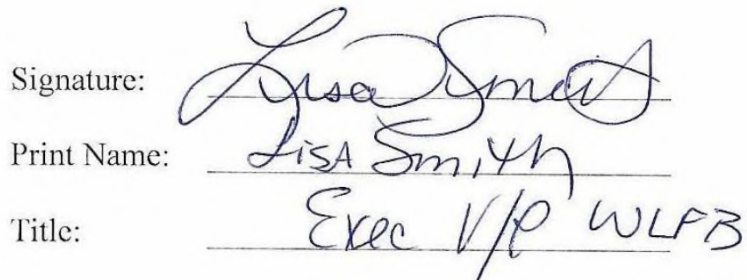 Signature: Lisa Smith
Print Name: Lisa Smith
Title: Exec V/P WLFB